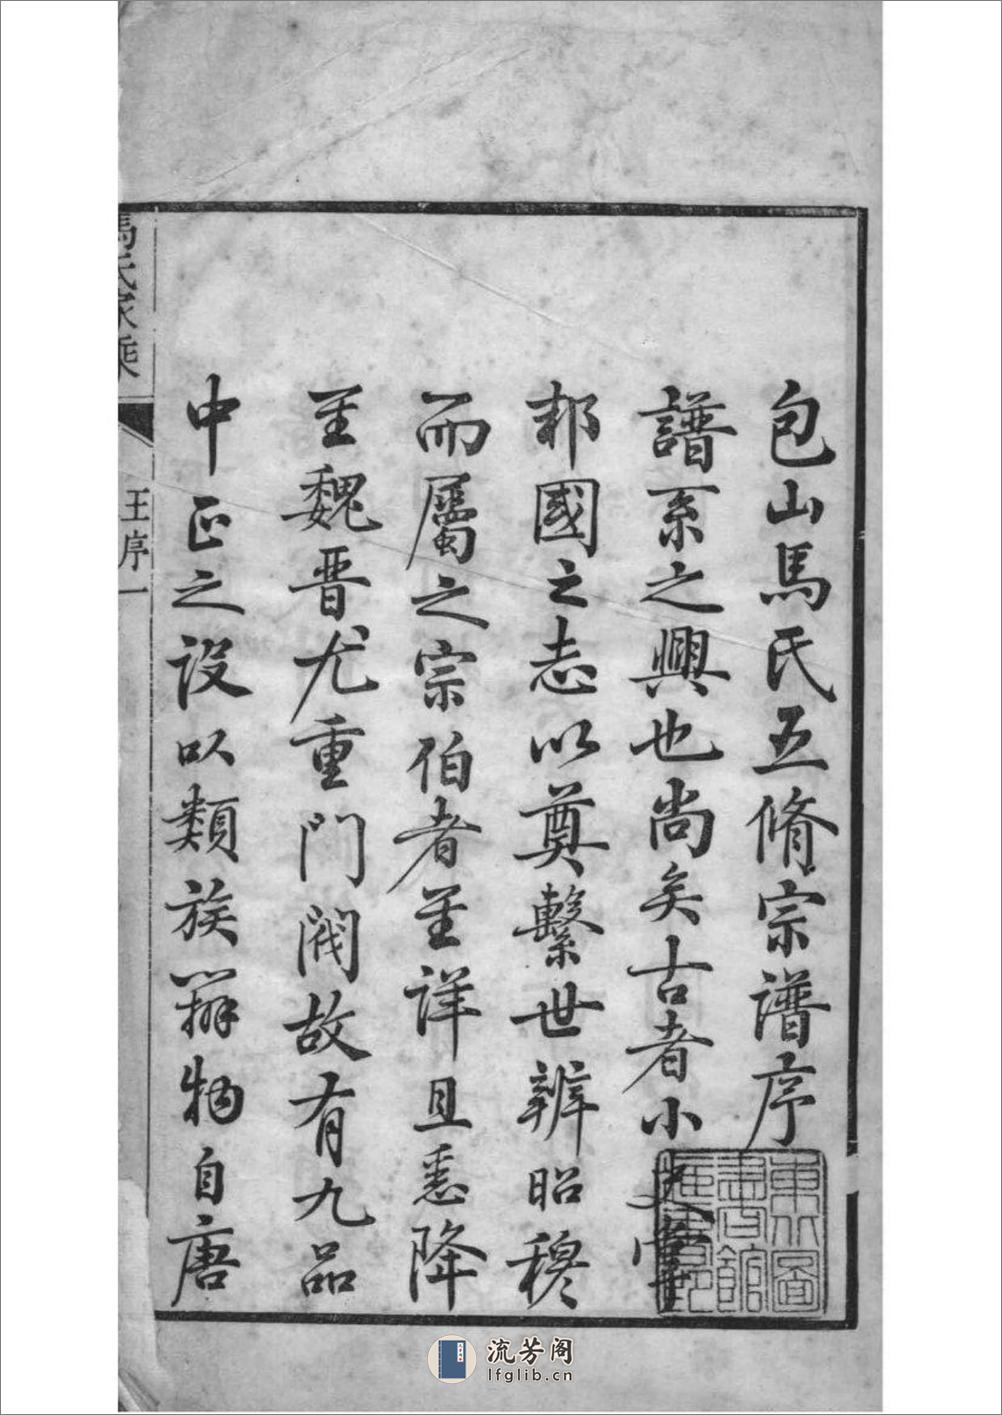 包山馬氏五脩宗譜序
譜系之興也尚矣古者小史掌
邦國之志以奠繫世辨昭穆
而屬之宗伯者至詳且悉降
至魏晋尤重門閥故有九品
中正之設以類族辨物自唐
馬氏家乘
王序
一
流芳阁
lfglib.cn